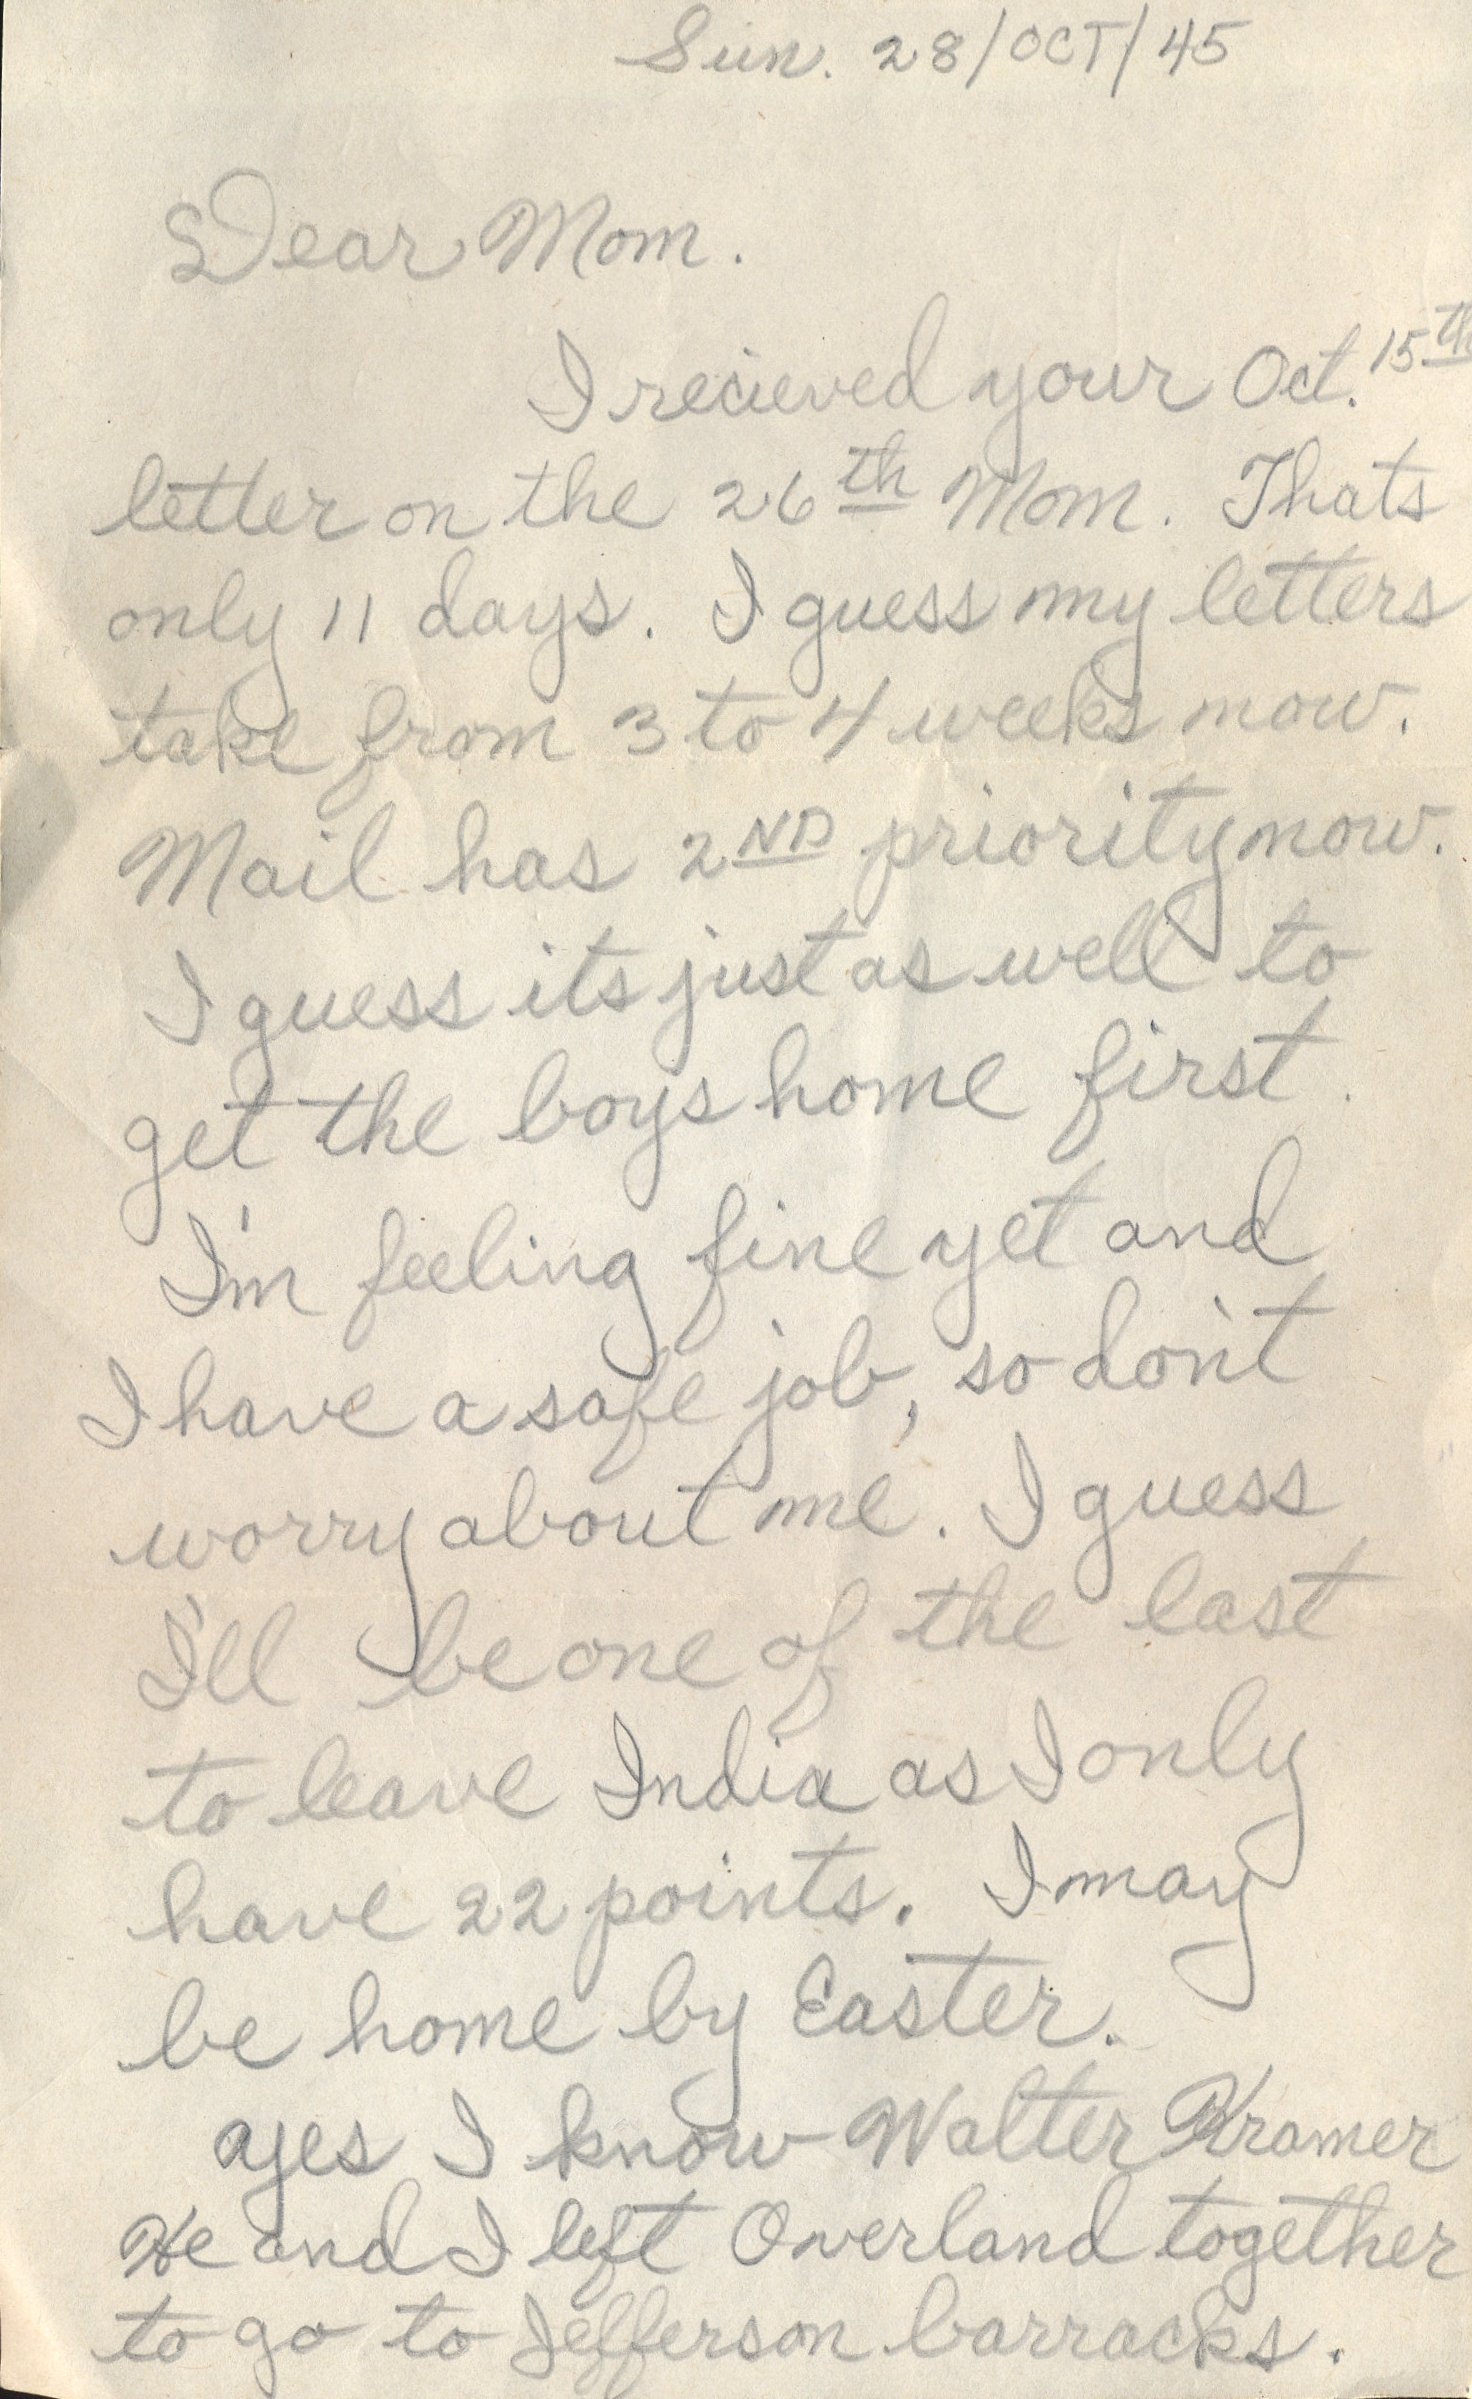 Sun. 28/OCT/45
Dear Mom.
I recieved your Oct. 15th
letter on the 26th Mom. Thats
only 11 days. I guess my letters
take from 3 to 4 weeks now.
Mail has 2ND priority now.
I guess its just as well to
get the boys home first.
I'm feeling fine yet and
I have a safe job, so don't
worry about me. I guess
I'll be one of the last
to leave India as I only
have 22 points. I may
be home by Easter.
yes I know Walter Kramer
He and I left Overland together
to go to Jefferson barracks.